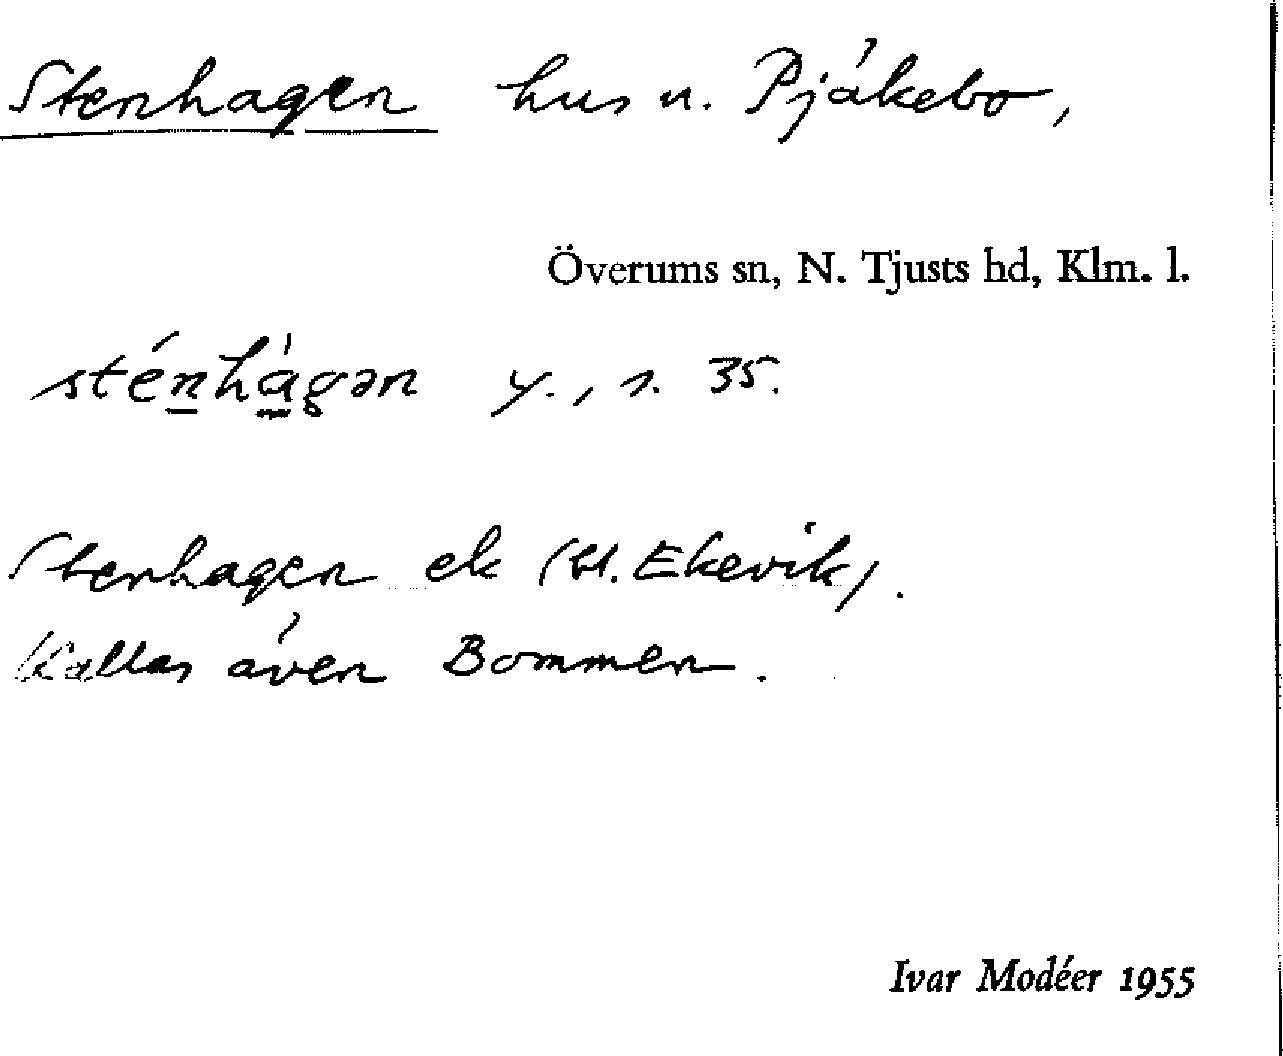 Stenhagen hus u. Pjäkebo,
Överums sn, N. Tjusts hd, Klm. l.
sténhàgən y., s. 35.
Stenhagen ek (bl. Ekevik).
Kallas även Bommen.
Ivar Modéer 1955